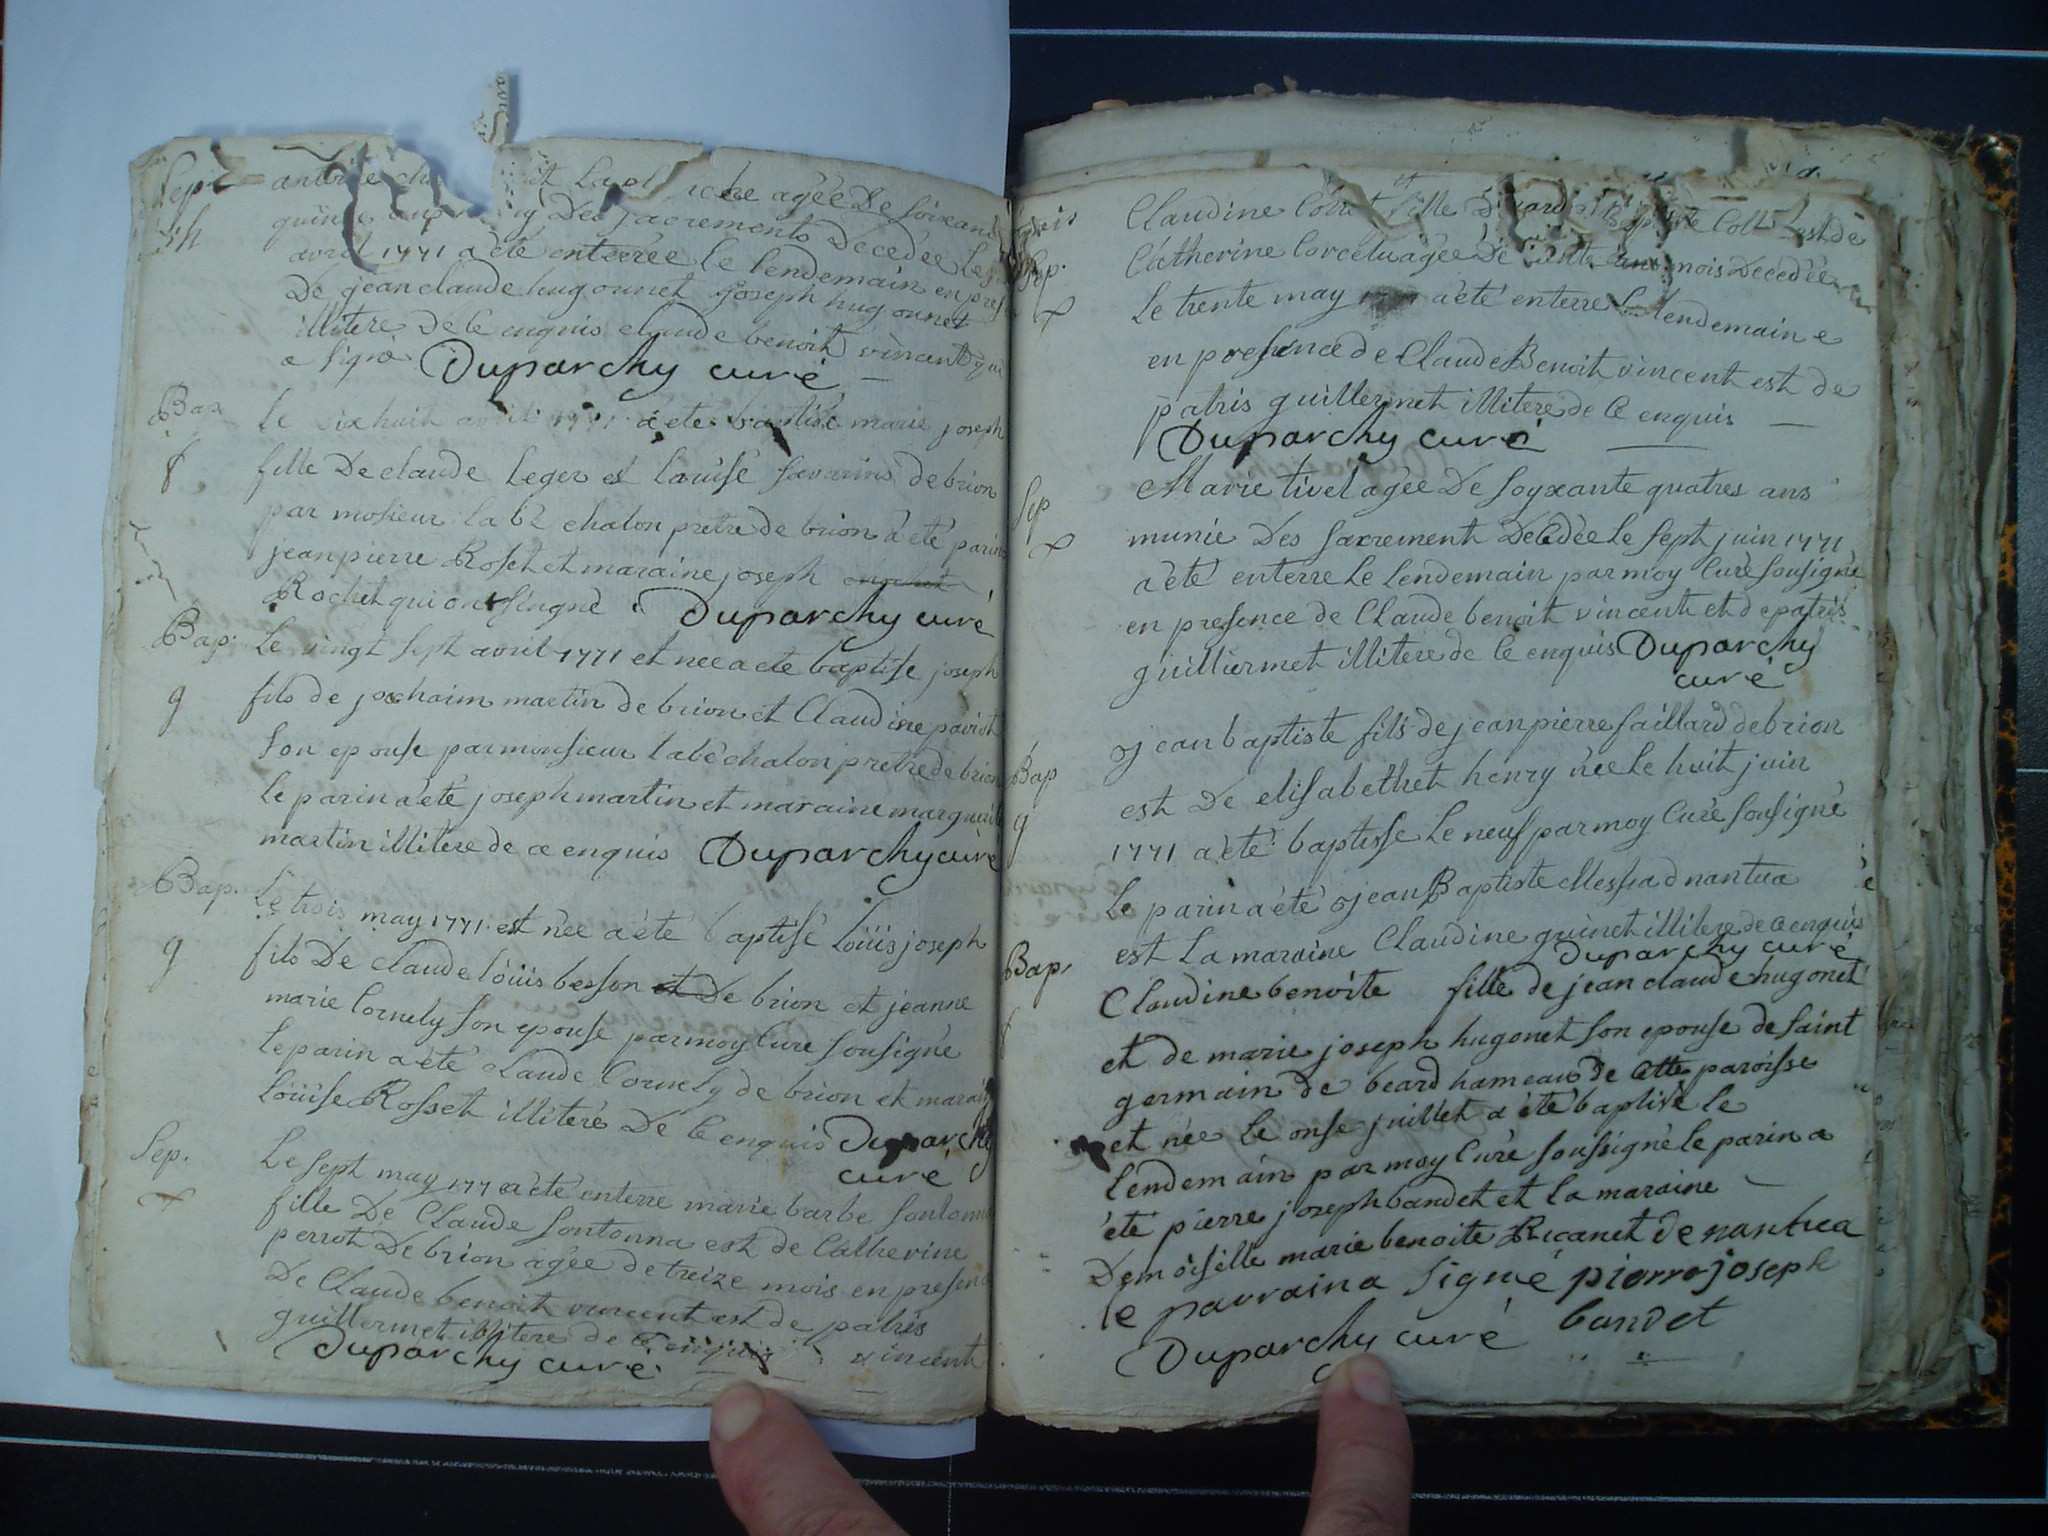 Sep.
agée De soixante
quinze Des sacrements Decedée Le
avril 1771 a été enterrée Le lendemain en pres
De jean claude hugonnet joseph hugonnet
illitere De Ce enquis claude benoit vincent qui
a signé Duparchy curé
Bap
le dix huit avril 1771 a été baptisé marie joseph
f
fille De claude Leger et Louise savarins de brion
par mosieur labé chalon pretre de brion à été parin
jean pierre Roset et maraine joseph
Rochet qui ont singné Duparchy curé
Bap.
Le vingt sept avril 1771 et nee a ete baptise joseph
g
fils de jochaim martin de brion et Claudine paviot
son epouse par monsieur labé chalon pretre de brion
le parin a été joseph martin et maraine marguerite
martin illitere de ce enquis Duparchy curé
Bap.
Le trois may 1771 est née a été baptisé Loüis joseph
g
fils De claude loüis besson et De brion et jeanne
marie Cornely son epouse par moy Curé sousigné
le parin a été claude Cornely de brion et maraine
Loüise Rosset illiteré De Ce enquis Duparchy
curé
Sep.
Le sept may 177 a été enterre marie barbe sontonna
fille De Claude sontonna est de Catherine
perrot De brion agée de treize mois en presence
De Claude benoit vincent est de patris
guillermet illitere de Ce enquis vincent
Duparchy curé
Claudine Collet fille Baptiste Collet est de
Catherine Corcelu agée De mois Decedée
Sep.
Le trente may a été enterre Le lendemain e
en presence de Claude Benoit vincent est de
patris guillermet illitere de Ce enquis
Duparchy curé
Sep
Marie tivel agée De soyxante quatres ans
munie Des sacrement Decedée Le sept juin 1771
a été enterre Le Lendemain par moy Curé sousigné
en presence de Claude benoit vincent et de patris
guilliermet illitere de Ce enquis Duparchy
curé
jean baptiste fils de jean pierre saillard de brion
Bap
est De elisabethet henry née Le huit juin
g
1771 a été baptisse Le neuf par moy Curé sousigné
Le parin a été jean Baptiste Messiad nantua
est La maraine Claudine guinet illitere de ce enquis
Duparchy curé
Bap.
Claudine benoite fille de jean claude hugonet
f
et de marie joseph hugonet son epouse de saint
germain de beard hameau de Cette paroisse
et née Le onse juillet a été baptisé le
lendemain par moy Curé soussigné le parin a
été pierre joseph bandet et la maraine
Demoiselle marie benoite Ricanet de nantua
le parraina signé pierre joseph
bandet
Duparchy curé